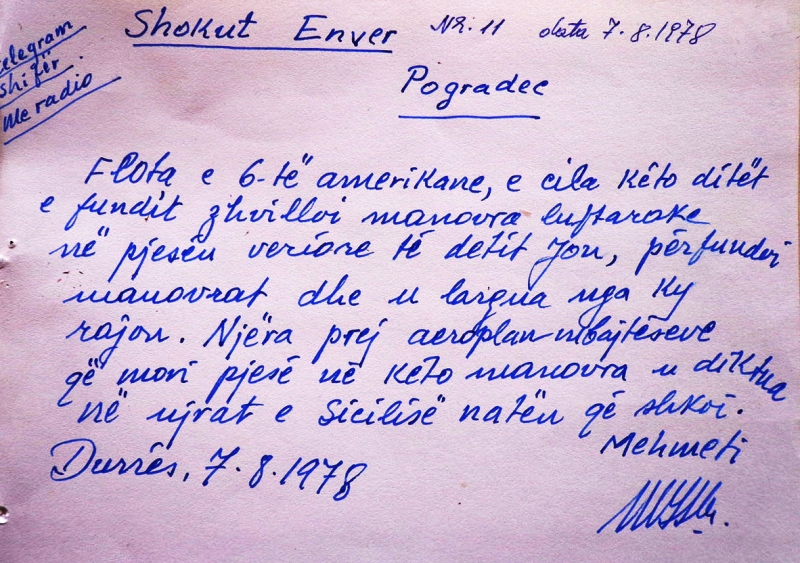 Telegram
shifër
Me radio
Shokut Enver Nr. 11 data 7.8.1978
Pogradec
Flota e 6-të amerikane, e cila këto ditët
e fundit zhvilloi manovra luftarake
në pjesën veriore të detit Jon, përfundoi
manovrat dhe u largua nga ky
rajon. Njëra prej aeroplan-mbajtëseve
që mori pjesë në këto manovra u diktua
në ujrat e Sicilisë natën që shkoi.
Mehmeti
Durrës, 7.8.1978